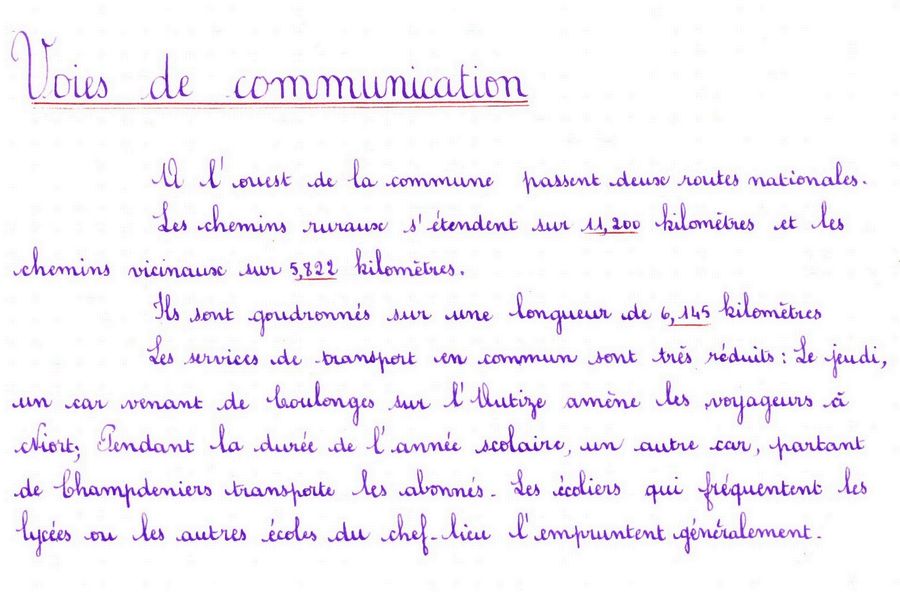 Voies de communication
A l'ouest de la commune passent deux routes nationales.
Les chemins ruraux s'étendent sur 11,200 kilomètres et les
chemins vicinaux sur 5,822 kilomètres.
Ils sont goudronnés sur une longueur de 6,145 kilomètres
Les services de transport en commun sont très réduits : Le jeudi,
un car venant de Coulonges sur l'Autize amène les voyageurs à
Niort ; Pendant la durée de l'année scolaire, un autre car, partant
de Champdeniers transporte les abonnés. Les écoliers qui fréquentent les
lycées ou les autres écoles du chef-lieu l'empruntent généralement.